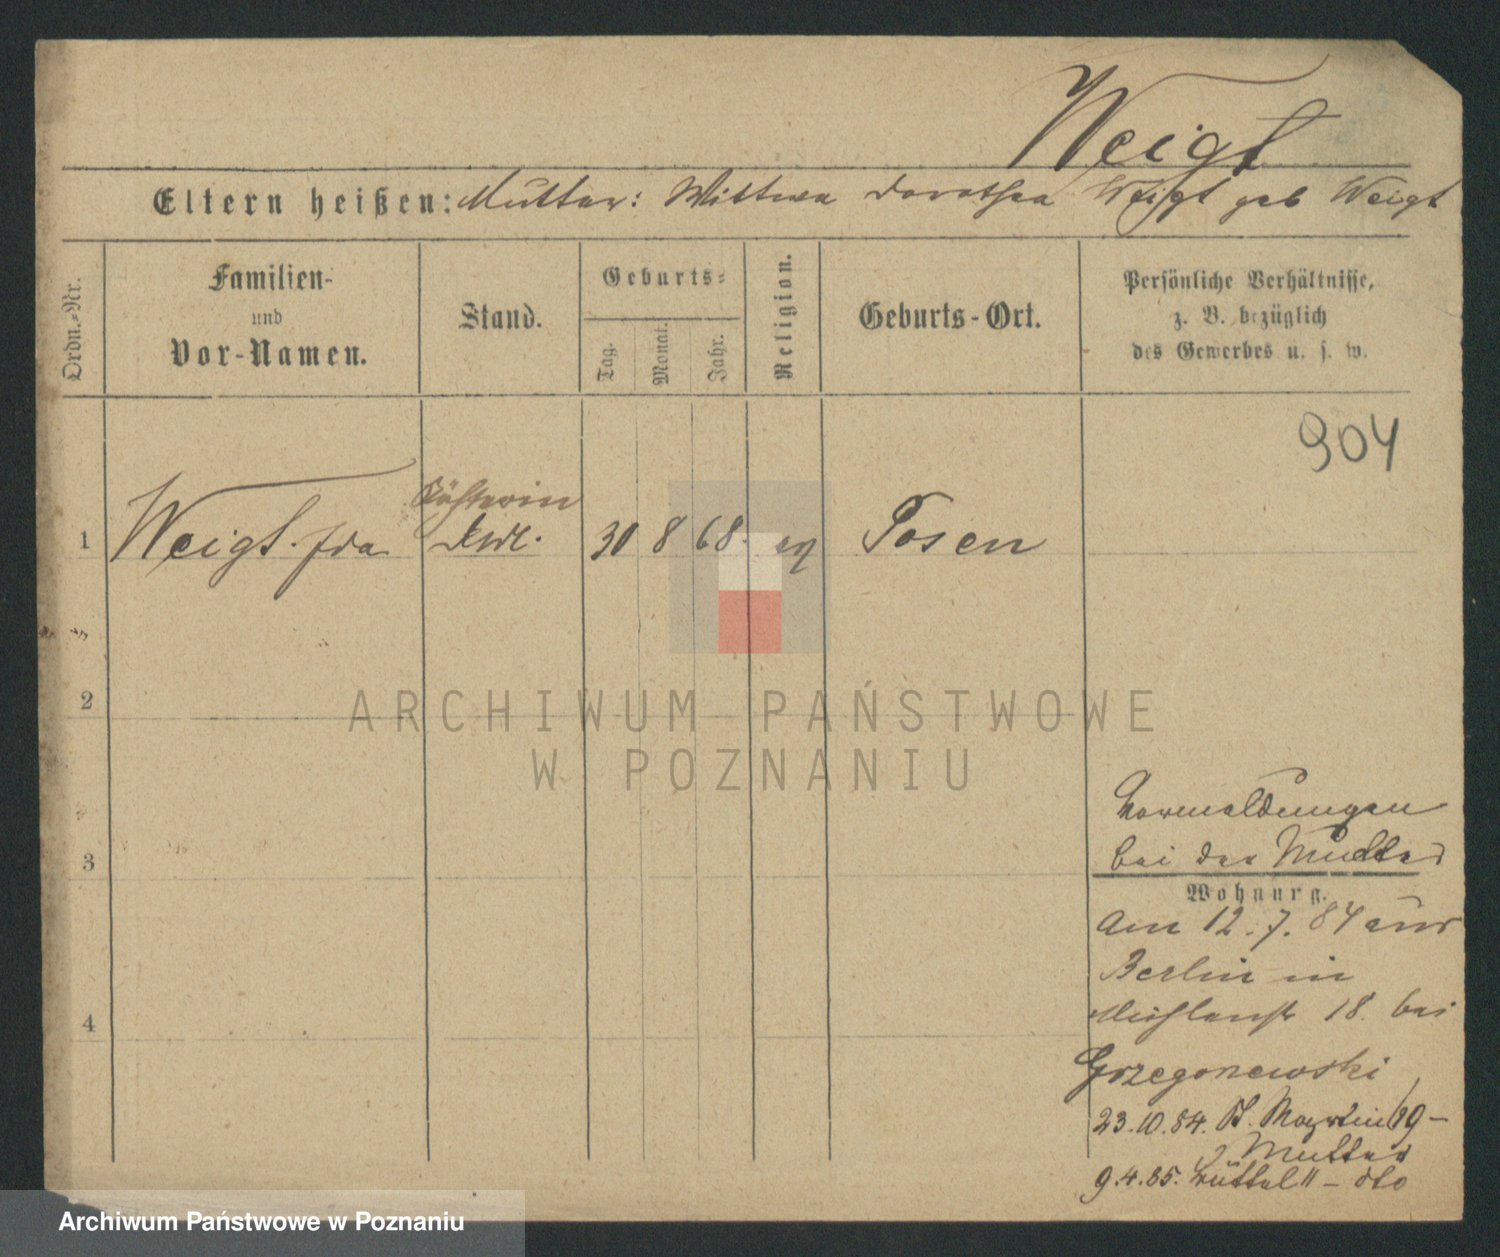 Weigt
Eltern heißen: Mutter: Wittwe Dorothea Weigt geb Weigt
Ordn.-Nr.
Familien-
und
Vor-Namen.
Stand.
Geburts-
Tag.
Monat.
Jahr.
Religion.
Geburts-Ort.
Persönliche Verhältnisse,
z. B. bezüglich
des Gewerbes u. s. w.
904
1 Weigt. Ida 30 8 68. ev Posen
2
3
4
Vormeldungen
bei der Mutter
Wohnung.
Am 12.7.84 aus
Berlin in
18. bei
Grzegorzewski
23.10.84. St. Martin 19 –
Mutter
9.4.85. Büttel 11 – dto
ARCHIWUM PAŃSTWOWE
W POZNANIU
Archiwum Państwowe w Poznaniu